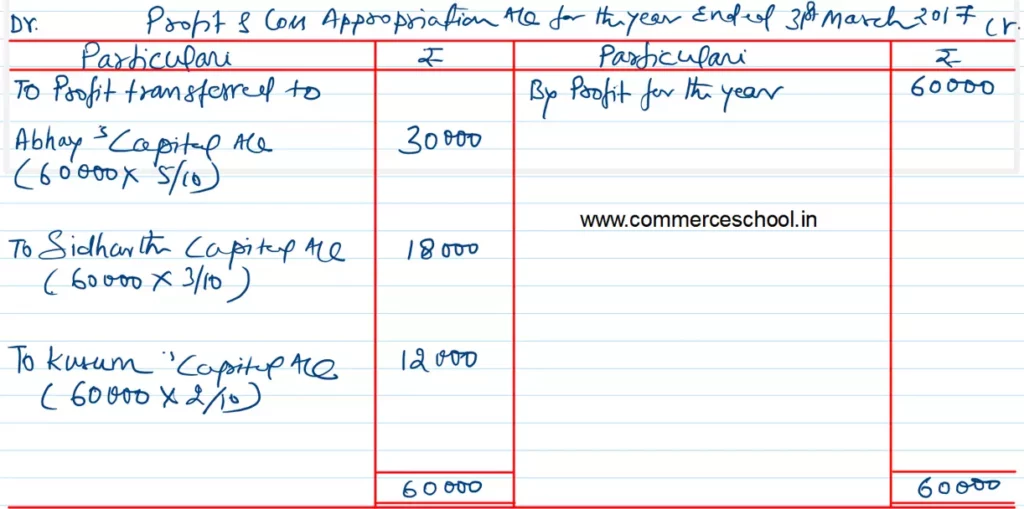 Dr. Profit & Loss Appropriation A/c for the year Ended 31st March 2017 Cr.
Particulars ₹ Particulars ₹
To Profit transferred to By Profit for the year 60000
Abhay's Capital A/c 30000
(60000 x 5/10)
www.commerceschool.in
To Sidharth Capital A/c 18000
(60000 x 3/10)
To Kusum's Capital A/c 12000
(60000 x 2/10)
60000 60000